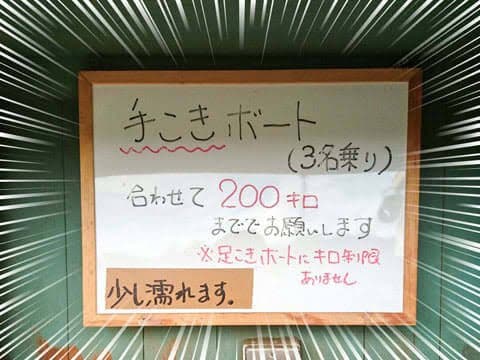 手こぎボート
(3名乗り)
合わせて 200キロ
まででお願いします
※足こぎボートにキロ制限
ありません
少し濡れます。